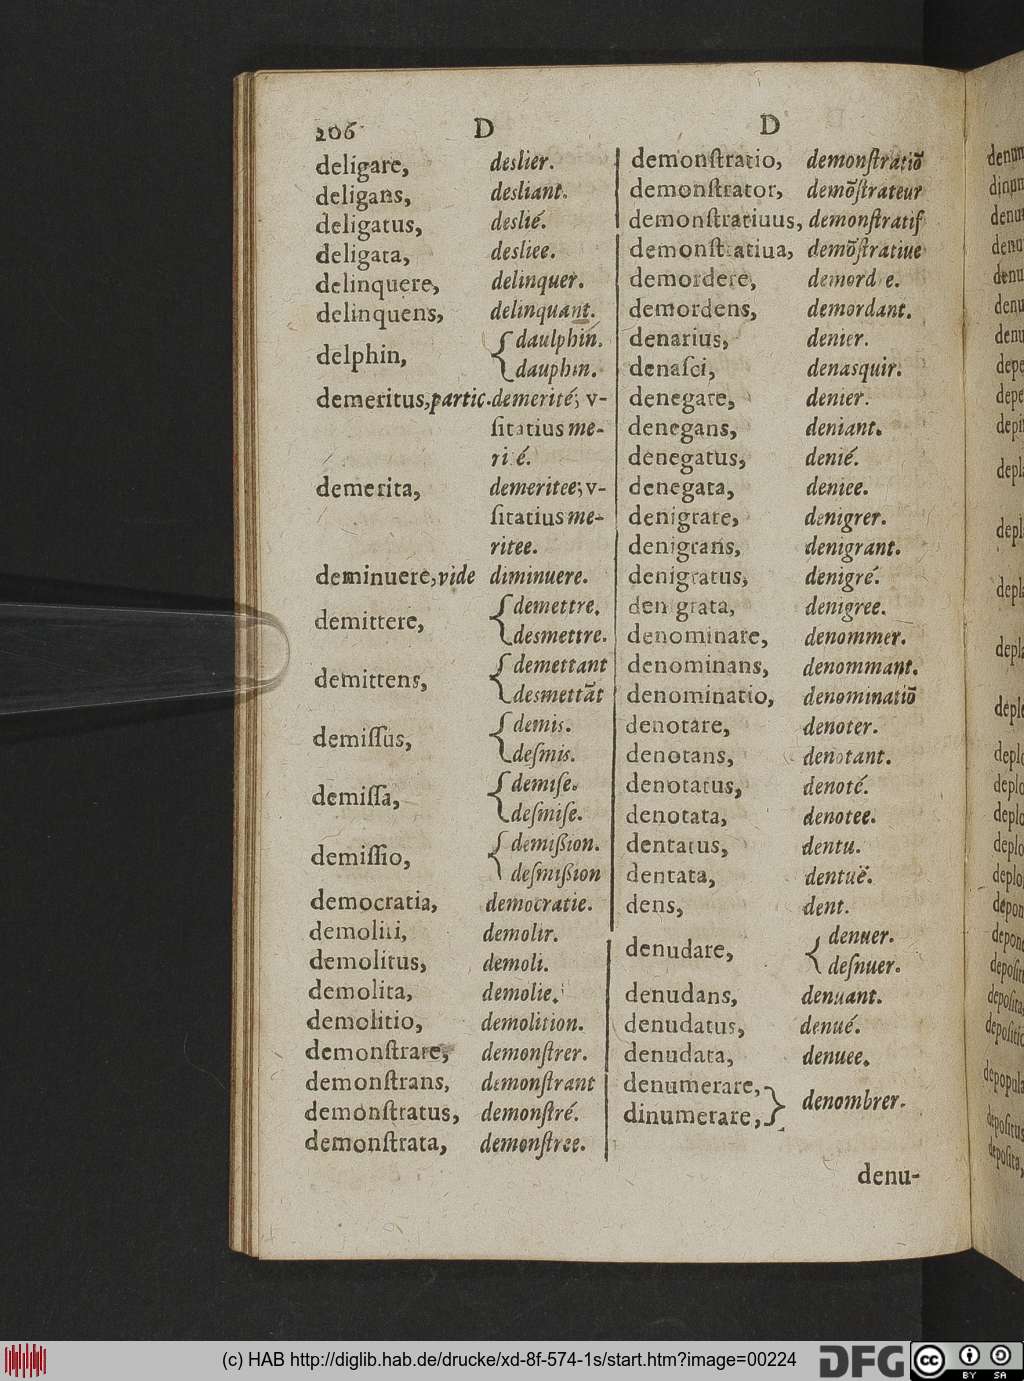 206 D D
deligare, deslier.
deligans, desliant.
deligatus, deslié.
deligata, desliee.
delinquere, delinquer.
delinquens, delinquant.
delphin, { daulphin.
dauphin.
demeritus, partic. demerité; v-
sitatius me-
ri é.
demerita, demeritee; v-
sitatius me-
ritee.
deminuere, vide diminuere.
demittere, { demettre.
desmettre.
demittens, { demettant
desmettãt
demiſſus, { demis.
deſmis.
demiſſa, { demiſe.
deſmiſe.
demiſſio, { demißion.
deſmißion
democratia, democratie.
demoliri, demolir.
demolitus, demoli.
demolita, demolie.
demolitio, demolition.
demonſtrare, demonſtrer.
demonſtrans, demonſtrant
demonſtratus, demonſtré.
demonſtrata, demonſtree.
demonſtratio, demonſtratiõ
demonſtrator, demõſtrateur
demonſtratiuus, demonſtratif
demonſtratiua, demõſtratiue
demordere, demord e.
demordens, demordant.
denarius, denier.
denaſci, denasquir.
denegare, denier.
denegans, deniant.
denegatus, denié.
denegata, deniee.
denigrare, denigrer.
denigrans, denigrant.
denigratus, denigré.
den grata, denigree.
denominare, denommer.
denominans, denommant.
denominatio, denominatiõ
denotare, denoter.
denotans, denotant.
denotatus, denoté.
denotata, denotee.
dentatus, dentu.
dentata, dentuë.
dens, dent.
denudare, { denuer.
deſnuer.
denudans, denuant.
denudatus, denué.
denudata, denuee.
denumerare, } denombrer.
dinumerare,
denu-
(c) HAB http://diglib.hab.de/drucke/xd-8f-574-1s/start.htm?image=00224
DFG
cc BY SA